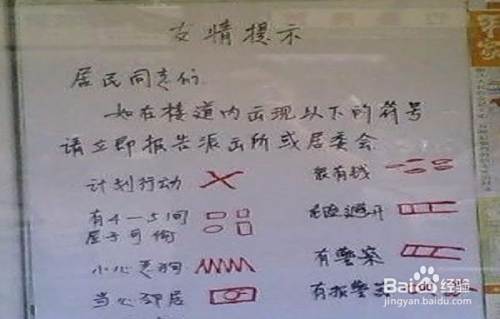 友情提示
居民同志们
如在楼道内出现以下的符号
请立即报告派出所或居委会
计划行动
很有钱
有4-5间
屋子可偷
危险避开
小心恶狗
有警察
当心邻居
有报警
Baidu经验
jingyan.baidu.com